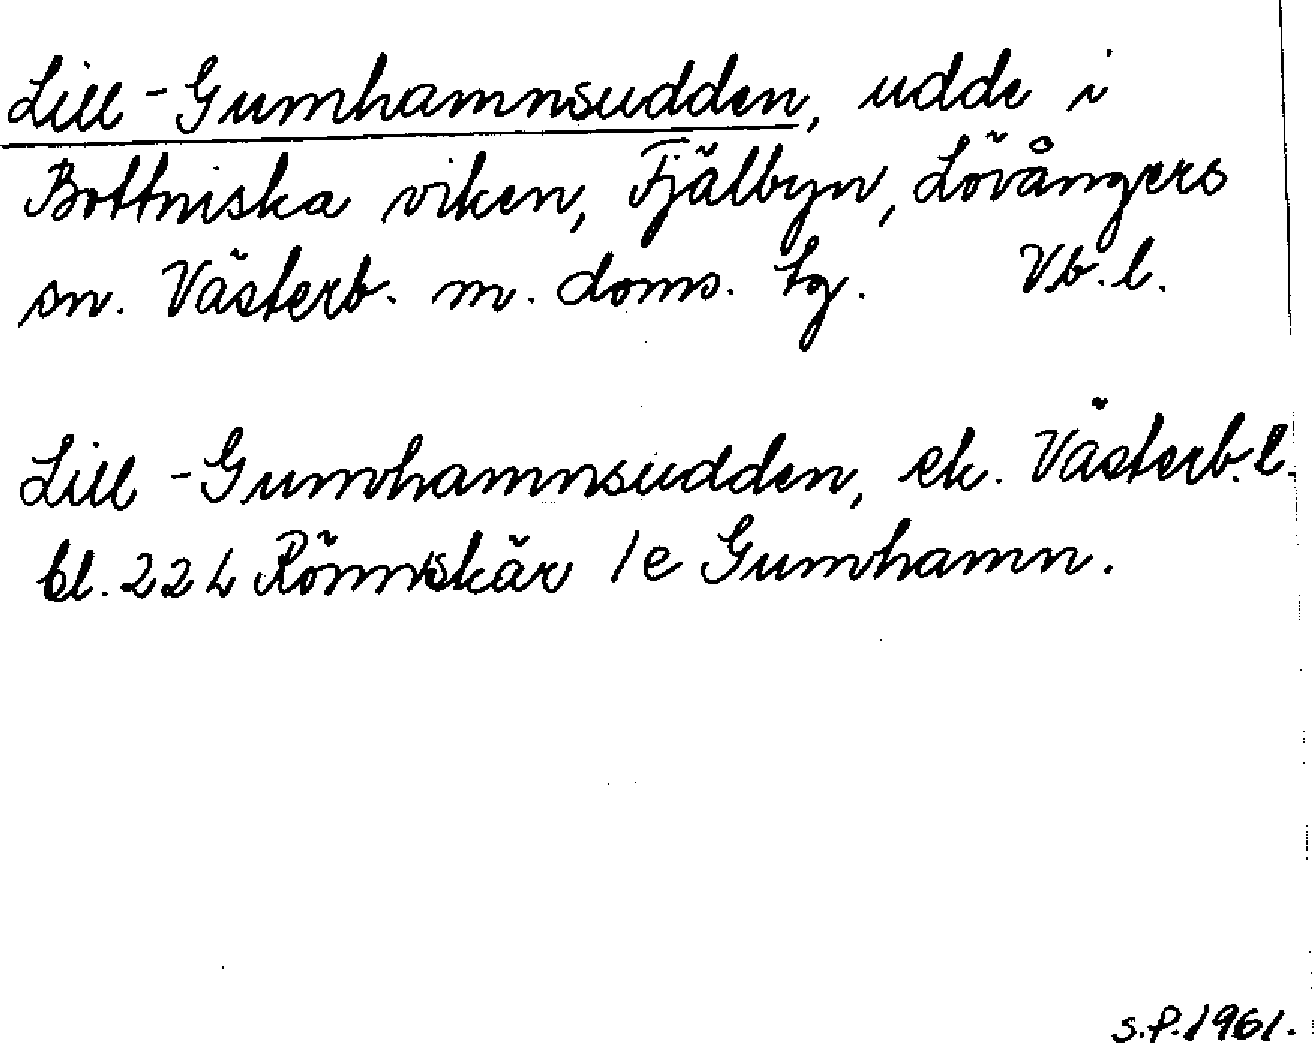 Lill-Gumhamnsudden, udde i
Bottniska viken, Fjälbyn, Lövångers
sn. Västerb. m. doms. tg. Vb. l.
Lill-Gumhamnsudden, ek. Västerb. l.
bl. 22 L Rönnskär 1e Gumhamn.
S.P. 1961.